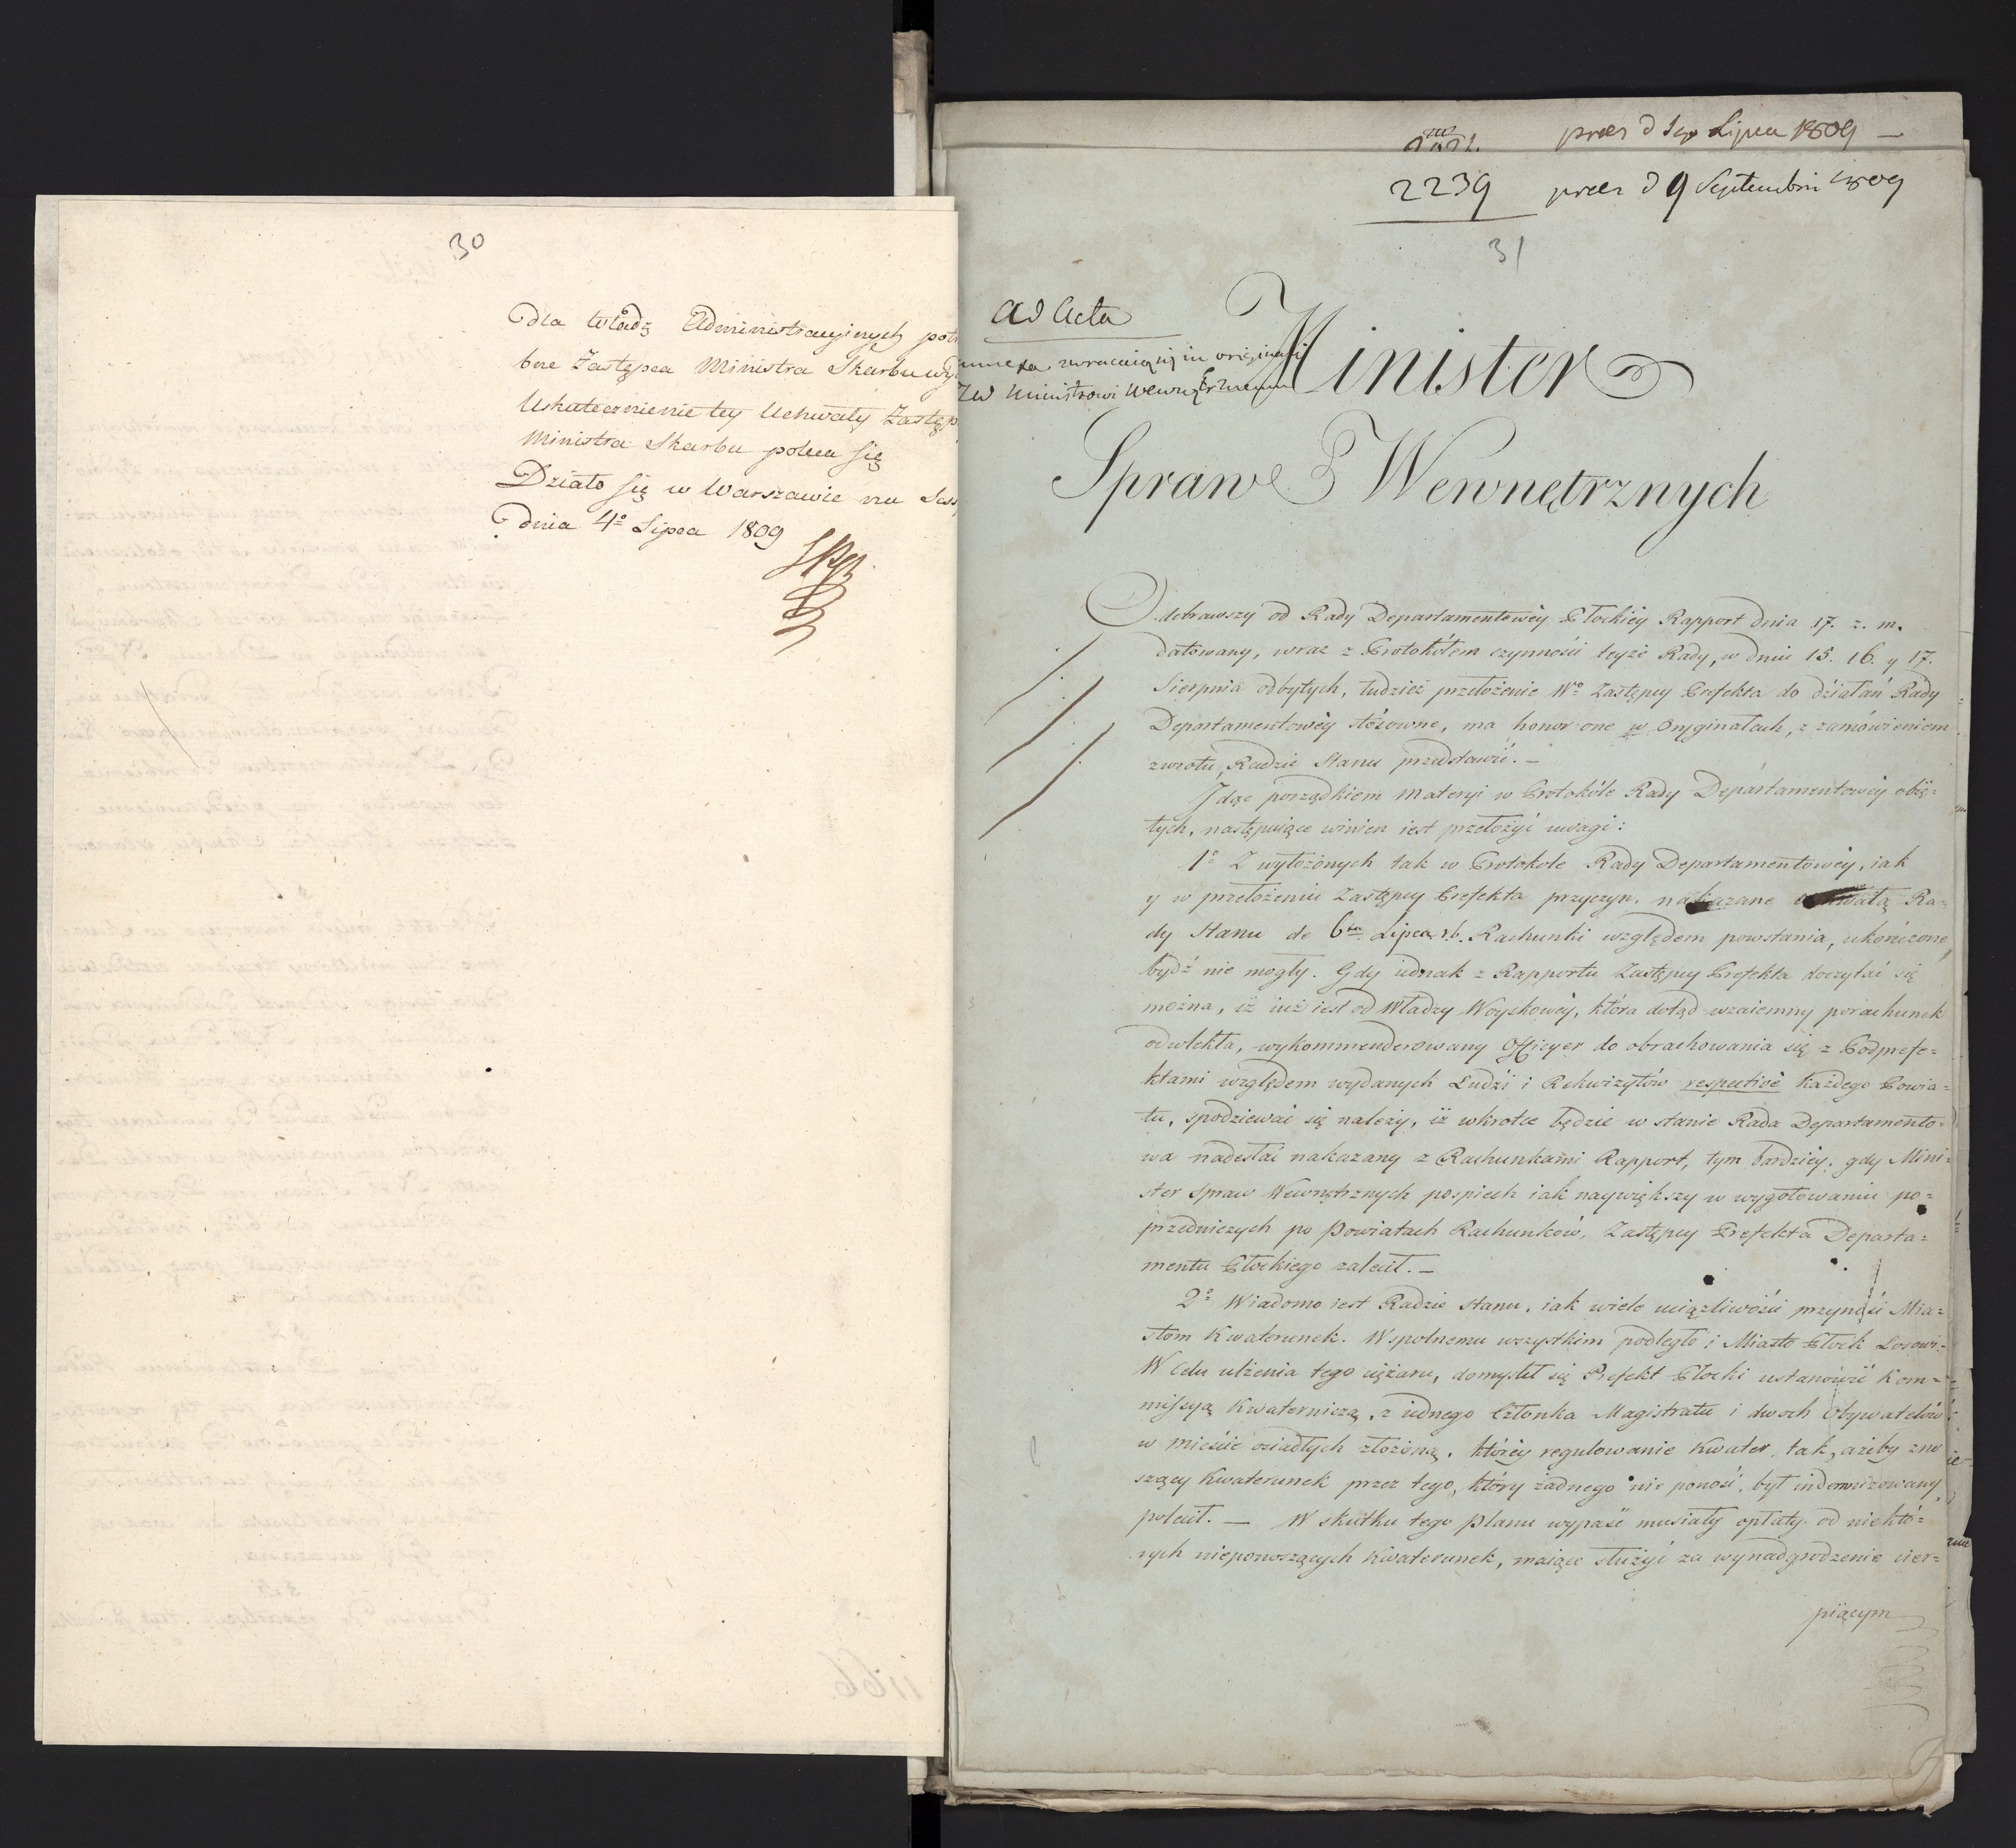 30
dla Władz Administracyinych pot
bne Zastępca Ministra Skarbu wy
Uskutecznienie tey Uchwały Zastęp
Ministra Skarbu poleca się
Działo się w Warszawie na Sess
dnia 4º Lipca 1809
prez d Lipca 1809
2239 prez d 9 Septembris 1809
31
Ad Acta
zwracaią się in originali
Ministrowi Wewnętrznemu
Minister
Spraw Wewnętrznych
Odebrawszy od Rady Departamentowéy Płockiéy Rapport dnia 17. z. m.
datowany, wraz z Protokółem czynności teyże Rady, w dniu 15. 16. y 17.
Sierpnia odbytych, tudzież przełożenie Wº Zastępcy Prefekta do działań Rady
Departamentowéy stósowne, ma honor one w Oryginałach, z zamówieniem
zwrotu, Radzie Stanu przedstawić. —
Idąc porządkiem Materyi w Protokóle Rady Departamentowéy obię=
tych, następuiące winien iest przełożyć uwagi:
1º Z wyłożonych tak w Protokole Rady Departamentowéy, iak
y w przełożeniu Zastępcy Prefekta przyczyn, nakazane uchwałą Ra=
dy Stanu de 6ta Lipca r.b. Rachunki względem powstania, ukończone
bydź nie mogły. Gdy iednak z Rapportu Zastępcy Prefekta doczytać się
można, iż iuż iest od Władzy Woyskowéy, która dotąd wzaiemny porachunek
odwlekła, wykommenderowany Officyer do obrachowania się z Podprefe=
ktami względem wydanych Ludzi i Rekwizytów respective każdego Powia=
tu, spodziewać się należy, iż wkrotce będzie w stanie Rada Departamento=
wa nadesłać nakazany z Rachunkami Rapport, tym bardziéy, gdy Mini=
ster Spraw Wewnętrznych pospiech iak naywiększy w wygotowaniu po=
przedniczych po Powiatach Rachunków, Zastępcy Prefekta Departa=
mentu Płockiego zalecił. —
2º Wiadomo iest Radzie Stanu, iak wiele uciążliwości przynosi Mia=
stom Kwaterunek. Wspolnemu wszystkim podległo i Miasto Płock Losowi.
W celu ulżenia tego ciężaru, domyslił się Prefekt Płocki ustanowić Kom=
missyą Kwaterniczą, z iednego Członka Magistratu i dwoch Obywatelów
w mieście osiadłych złożoną, któréy regulowanie Kwater tak, ażeby zno
szący Kwaterunek przez tego, który żadnego nie ponosi, był indemnizowany
polecił. — W skutku tego planu wypaść musiały opłaty od niektó=
rych nieponoszących Kwaterunek, maiące służyć za wynadgrodzenie cier=
piącym